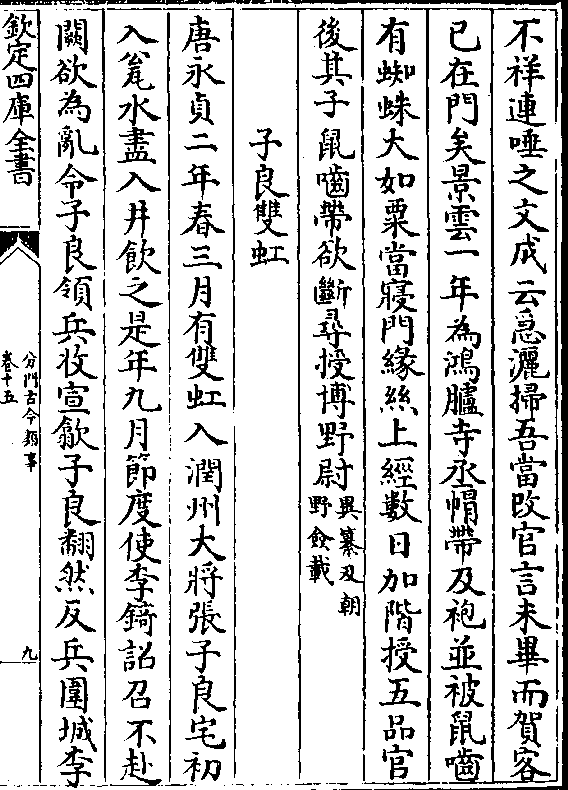 不祥連唾之文成云急灑掃吾當改官言未畢而賀客
已在門矣景雲一年為鴻臚寺丞帽帶及袍並被鼠嚙
有蜘蛛大如粟當寢門緣絲上經數日加階授五品官
後其子鼠嚙帶欲斷尋授博野尉異纂及朝野僉載
子良雙虹
唐永貞二年春三月有雙虹入潤州大將張子良宅初
入瓮水盡入井飲之是年九月節度使李錡詔召不赴
闕欲為亂令子良領兵收宣歙子良翻然反兵圍城李
欽定四庫全書
分門古今類事
卷十五
九